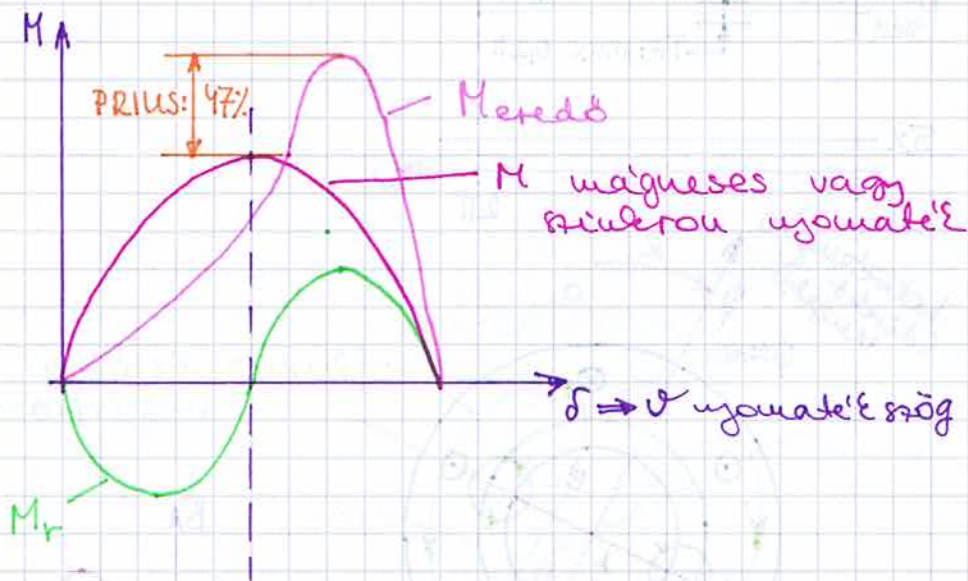 M
PRIUS: 47%
Meredő
M mágneses vagy
szinkron nyomaték
δ ⇒ ϑ nyomaték szög
Mr